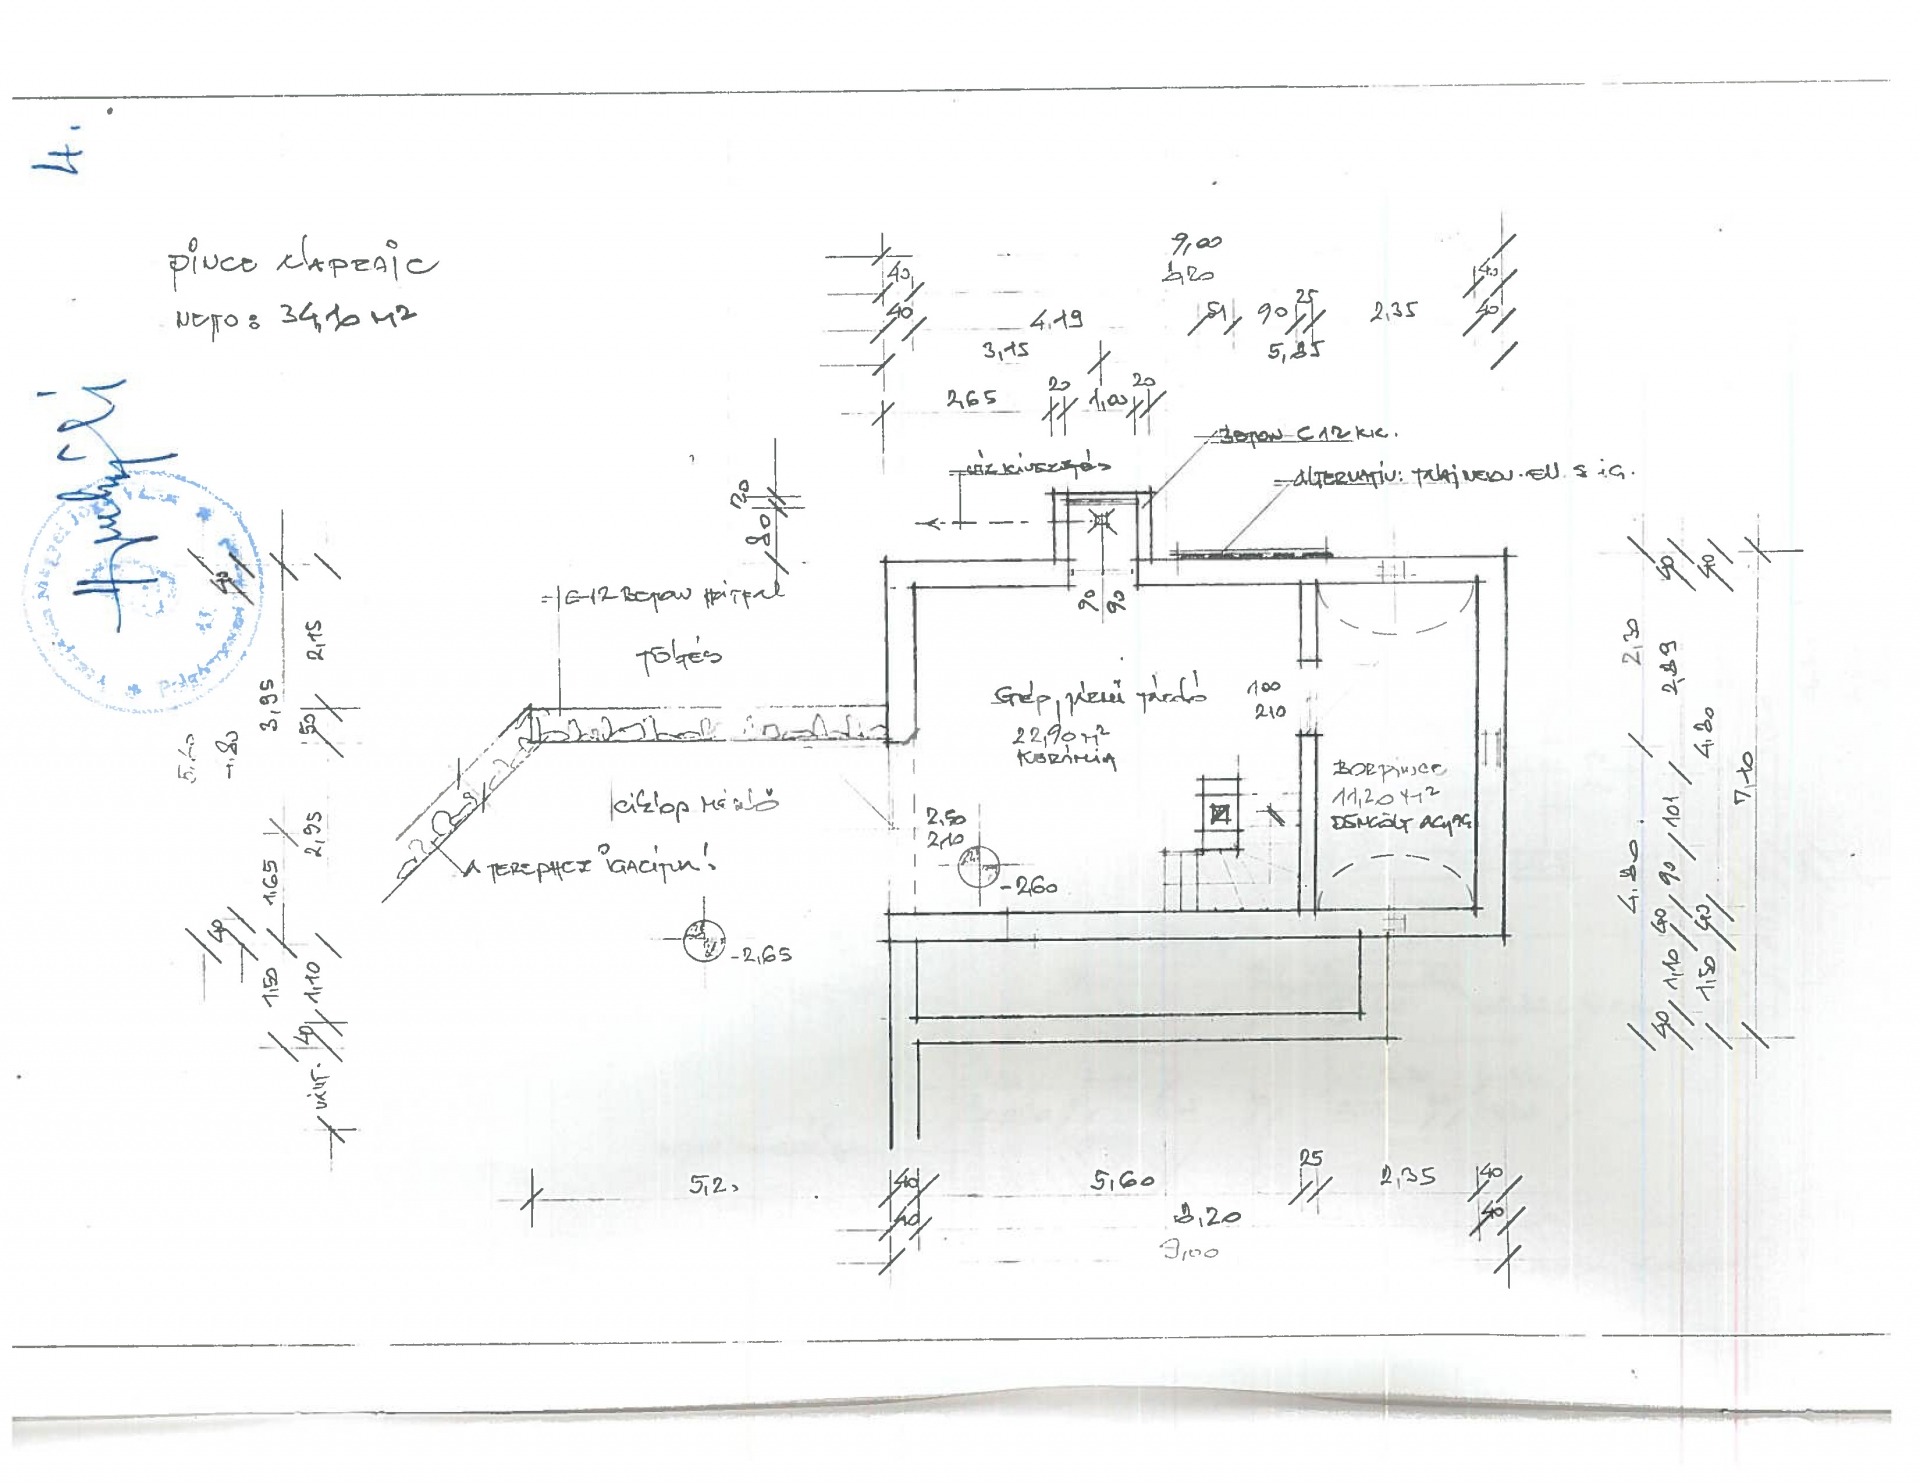 4.
PINCE ALAPRAJZ
NETO: 34,10 M2
9,00
8,20
40
40
40
4,19
51
90
25
2,35
40
3,15
5,85
2,65
20
1,00
20
BETON C12 KK.
VÍZKIVEZETÉS
20
80
90
90
C-12 BETON HÁTFAL
TÖLTÉS
GÉP, KERTI TÁROLÓ
22,90 M2
KERÁMIA
100
210
BORPINCE
11,20 M2
DÖNGÖLT AGYAG
A TEREPHEZ IGAZÍTVA!
2,50
2,10
-2,60
-2,65
40
2,15
3,95
50
5,60
4,80
2,95
1,65
40
1,50
1,10
40
40
40
2,30
2,89
4,80
7,10
101
90
4,80
40
40
1,10
1,50
40
5,2
40
5,60
25
2,35
40
40
8,20
40
9,00